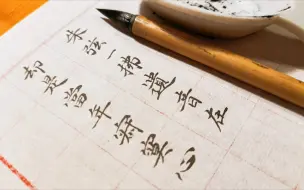 朱弦一拂遺音在
却是當年寂寞心